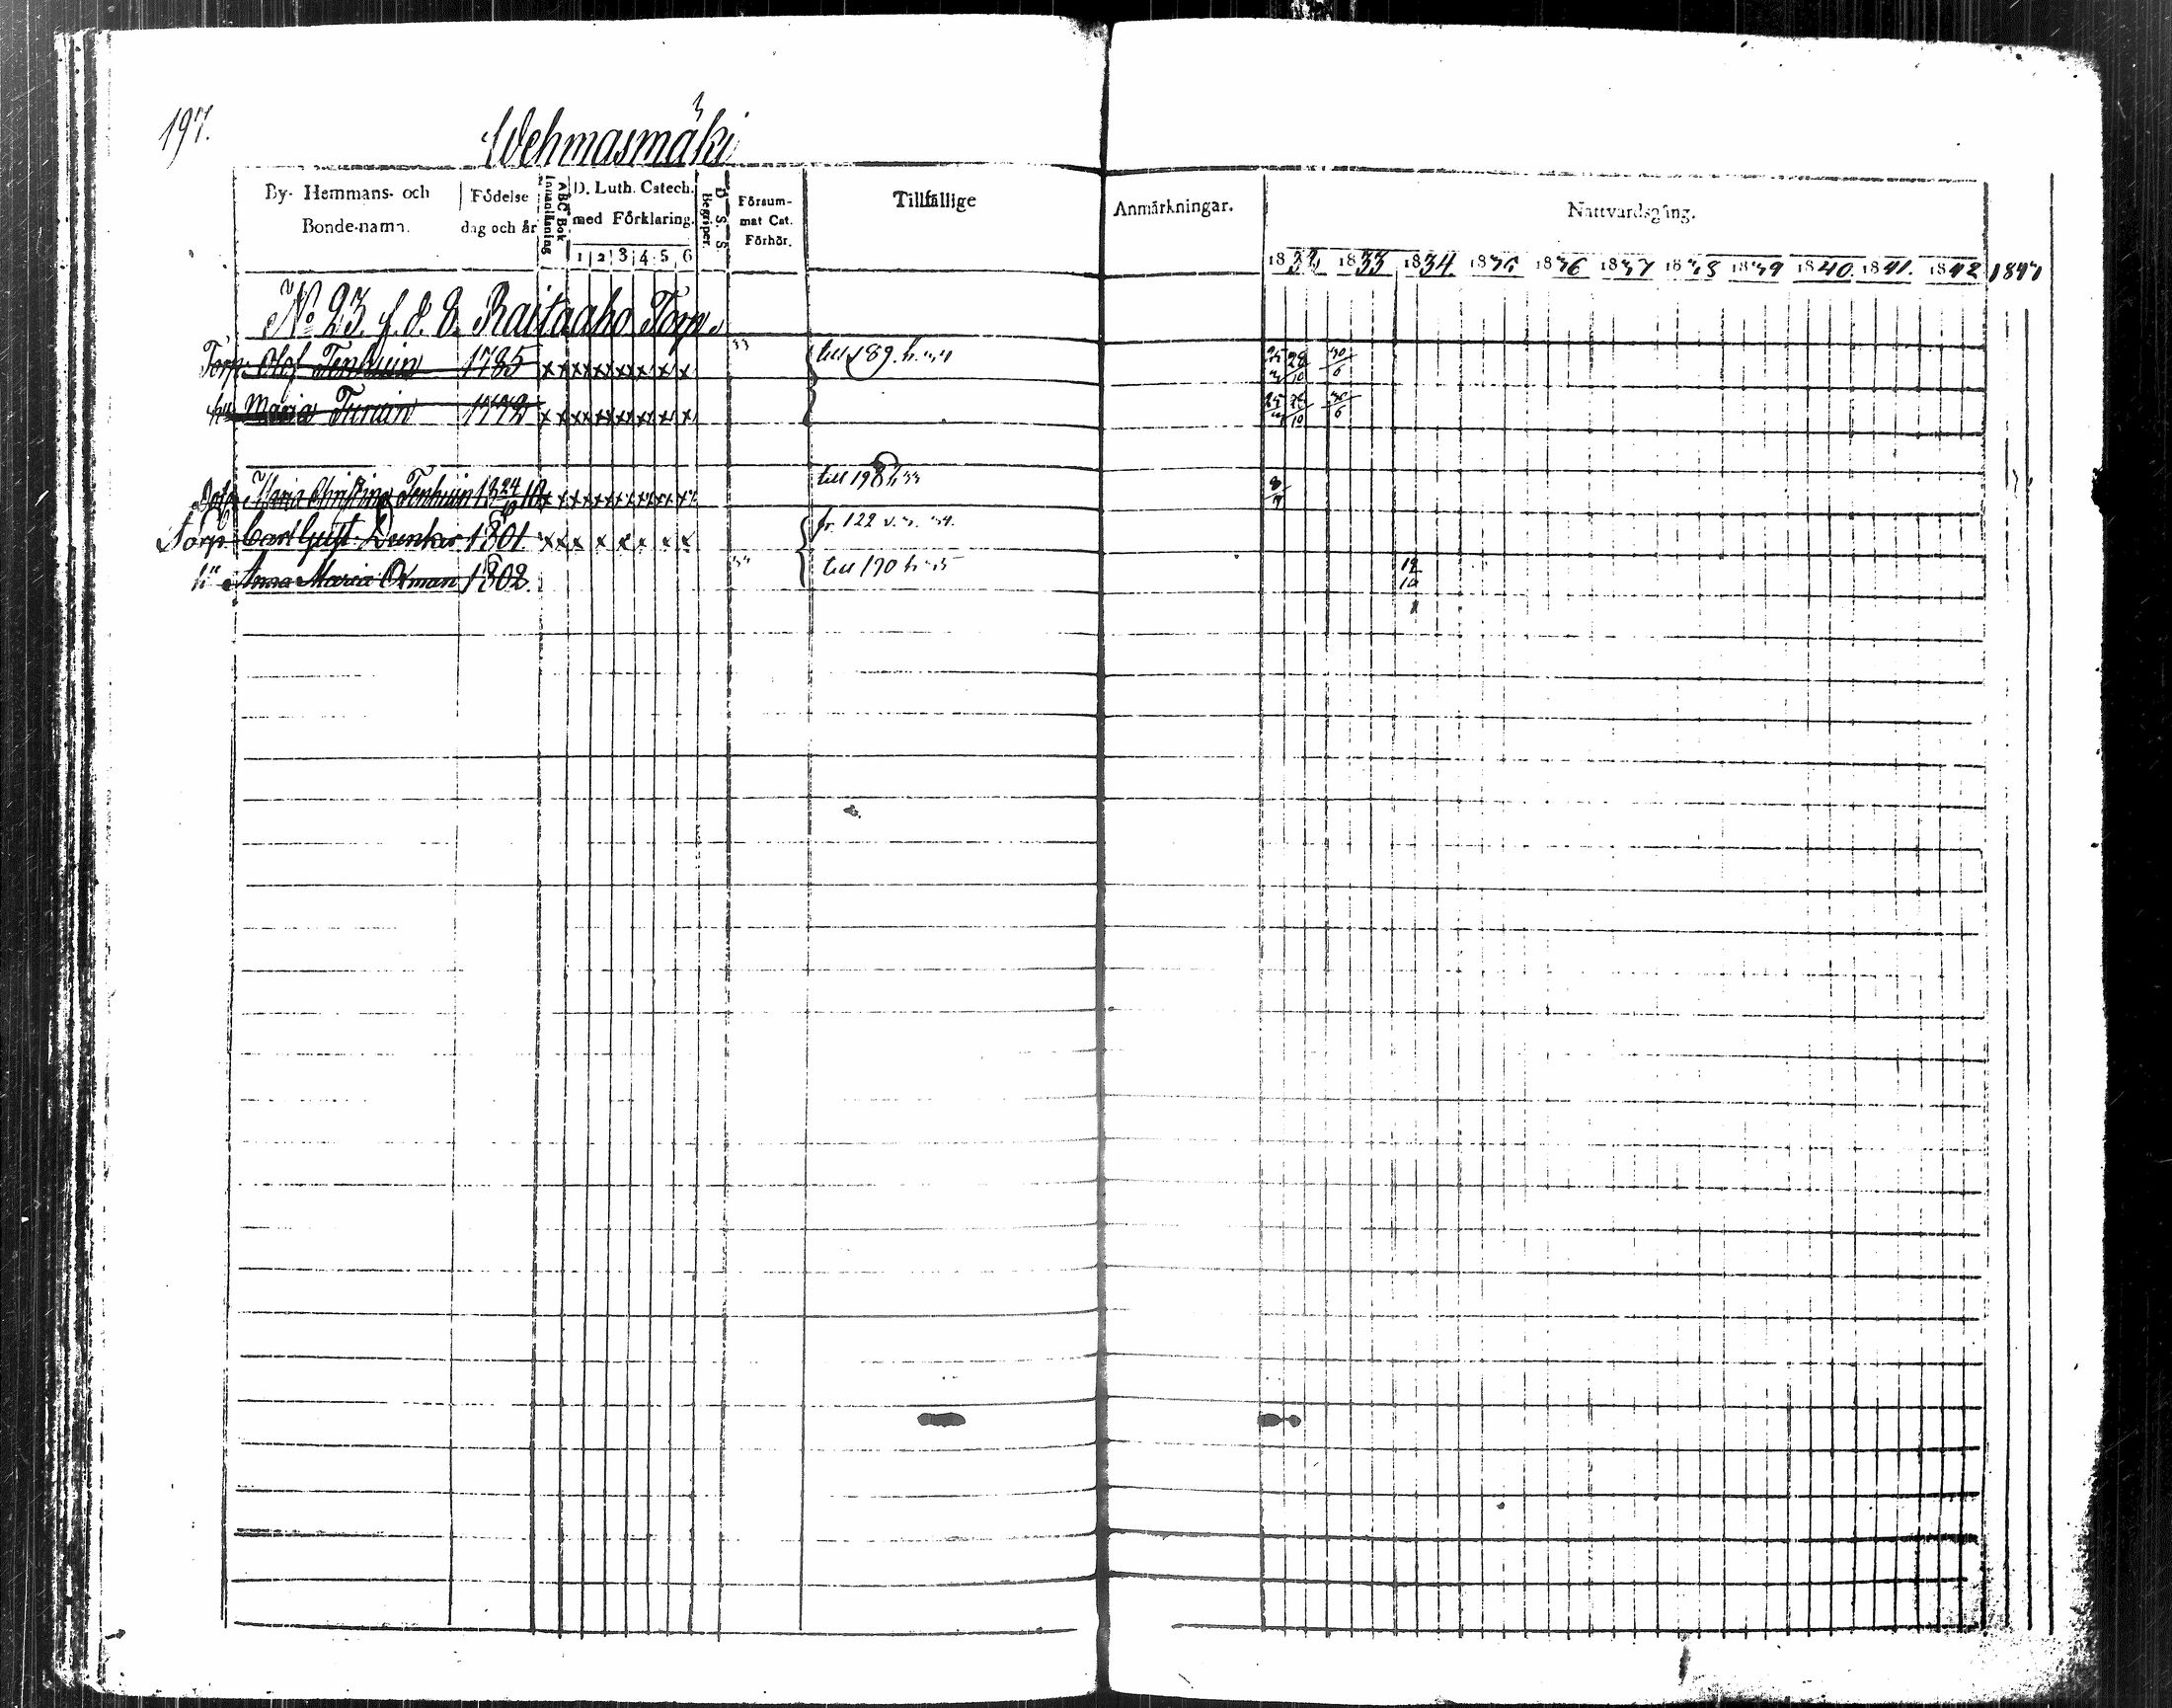 197.
Wehmasmäki
By- Hemmans- och Bonde-namn.
Födelse dag och år
Innanläsning
ABC Bok
D. Luth. Catech. med Förklaring.
1 2 3 4 5 6
D. S. S. Begriper.
Försum- mat Cat. Förhör.
Tillfällige
Anmärkningar.
Nattvardsgång.
1832 1833 1834 1835 1836 1837 1838 1839 1840. 1841. 1842 1843
No 23. f. d. E. Raitaaho Torp.
Torp. Olof Tenhuin 1785 x x x x x x x x 33 till 189. h. 34 25/3 28/10 30/6
hu Maria Turuin 1772 x x x x x x x x 25/3 28/10 30/6
Dotr Maria Christina Tenhuin 1824 till 198 h 33 8/7
Torp Carl Gust. Dunker 1801 x x x x x x x x fr. 122 v. 3. 34.
hu Anna Maria Oxman 1802. till 170 h 35 12/10